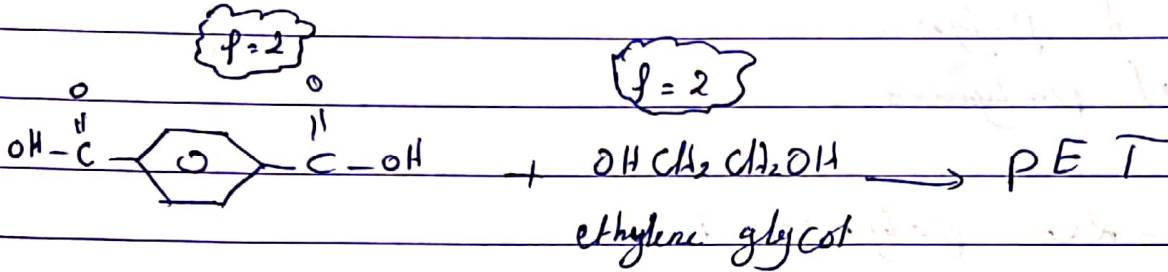 f = 2
f = 2
O O
OH - C - C - OH + OH CH₂ CH₂OH → PET
ethylene glycol